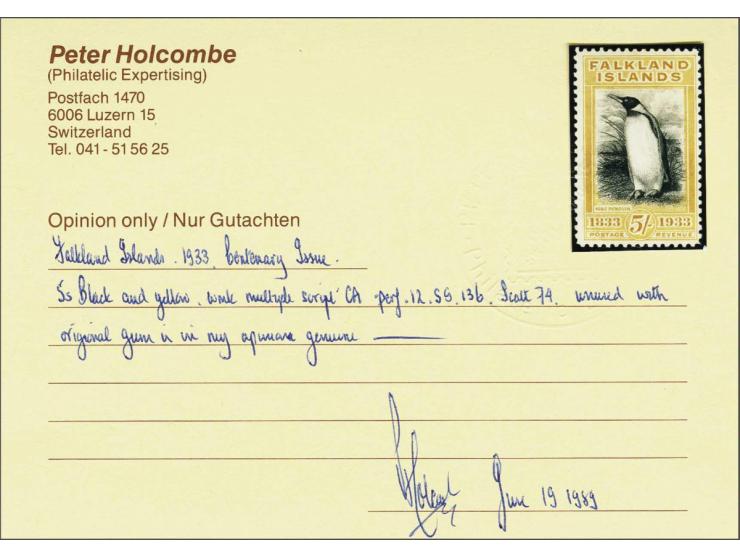 Peter Holcombe
(Philatelic Expertising)
Postfach 1470
6006 Luzern 15
Switzerland
Tel. 041 - 51 56 25
FALKLAND
ISLANDS
KING PENGUIN
1833 5/- 1933
POSTAGE REVENUE
Opinion only / Nur Gutachten
Falkland Islands. 1933. Centenary Issue.
5s Black and yellow. wmk multiple script CA perf. 12. SG. 136. Scott 74. unused with
original gum is in my opinion genuine
June 19 1989